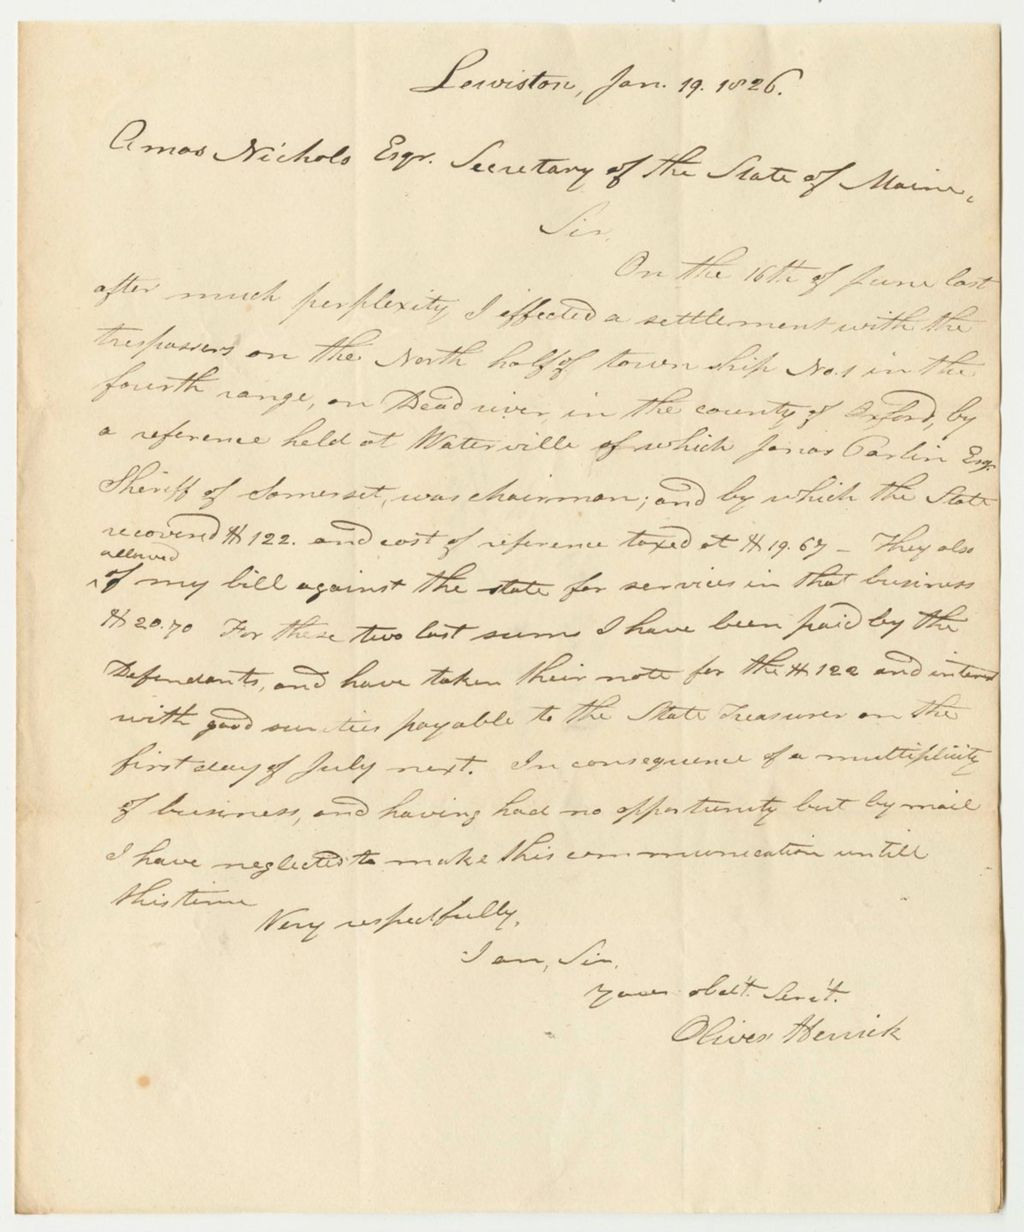 Lewiston, Jan. 19. 1826.
Amos Nichols Esqr. Secretary of the State of Maine,
Sir,
On the 16th of June last
after much perplexity I effected a settlement with the
trespassers on the North half of town ship No. 1 in the
fourth range, on Dead river, in the county of Oxford, by
a reference held at Waterville of which Jonas Parlin Esqr.
Sheriff of Somerset, was chairman; and by which the State
recovered $122. and cost of reference taxed at $19.67 - They also
allowed
^ of my bill against the state for services in that business
$20.70 For these two last sums I have been paid by the
Defendants, and have taken their note for the $122 and interest
with good sureties payable to the State Treasurer on the
first day of July next. In consequence of a multiplicity
of business, and having had no opportunity but by mail
I have neglected to make this communication untill
this time
Very respectfully,
I am, Sir,
your obed't. Serv't.
Oliver Herrick